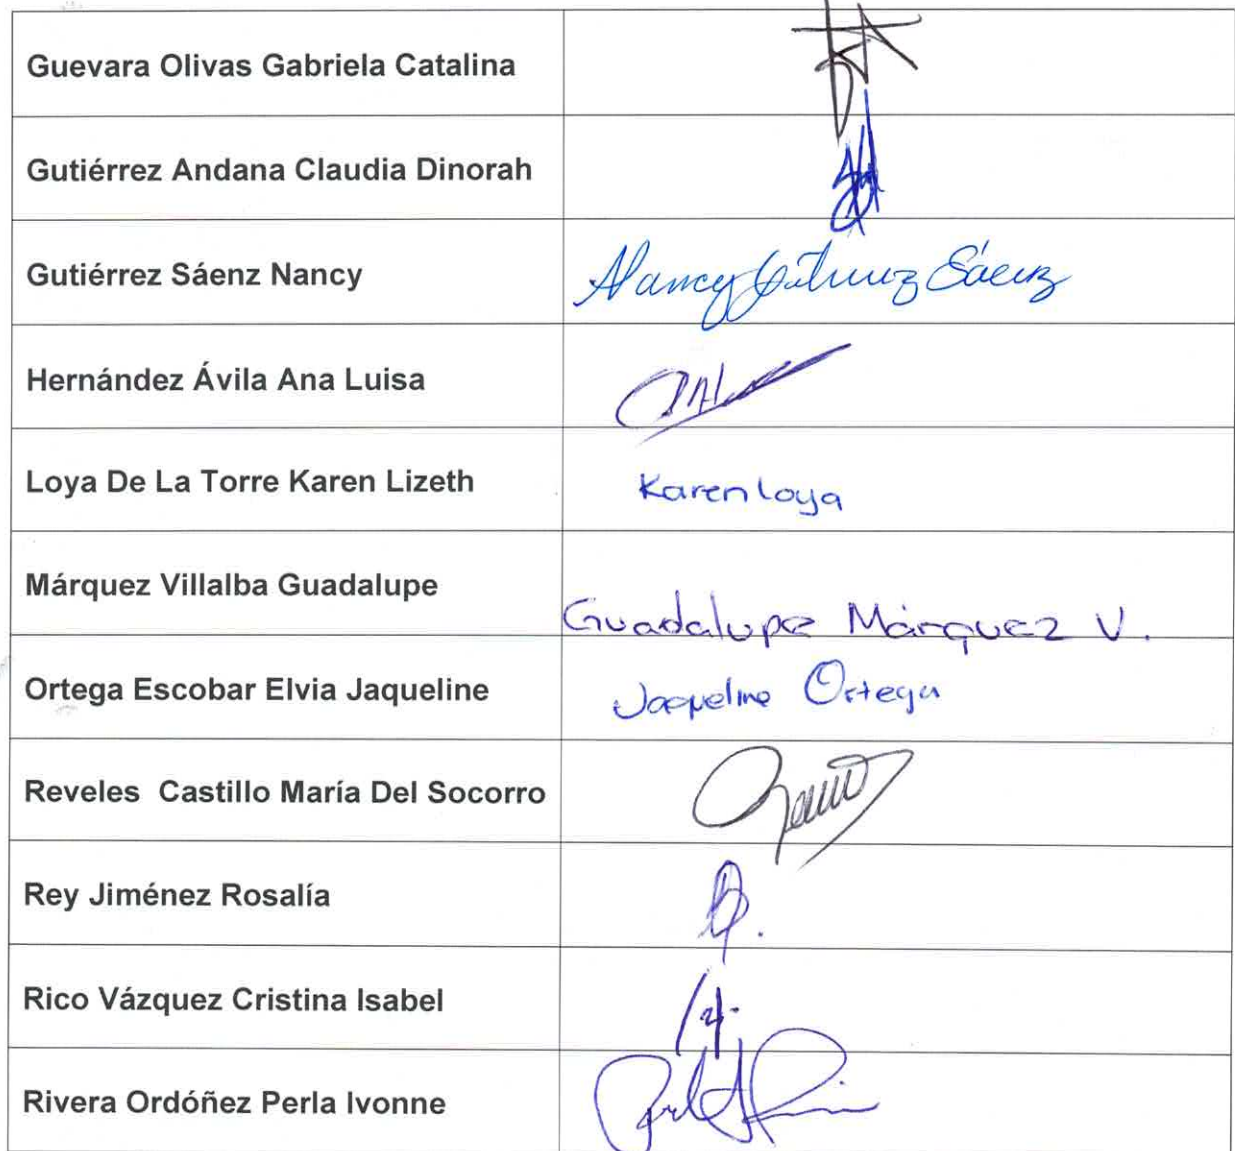 Guevara Olivas Gabriela Catalina
Gutiérrez Andana Claudia Dinorah
Gutiérrez Sáenz Nancy Nancy Gutiérrez Sáenz
Hernández Ávila Ana Luisa
Loya De La Torre Karen Lizeth Karen Loya
Márquez Villalba Guadalupe
Guadalupe Márquez V.
Ortega Escobar Elvia Jaqueline Jaqueline Ortega
Reveles Castillo María Del Socorro
Rey Jiménez Rosalía
Rico Vázquez Cristina Isabel
Rivera Ordóñez Perla Ivonne